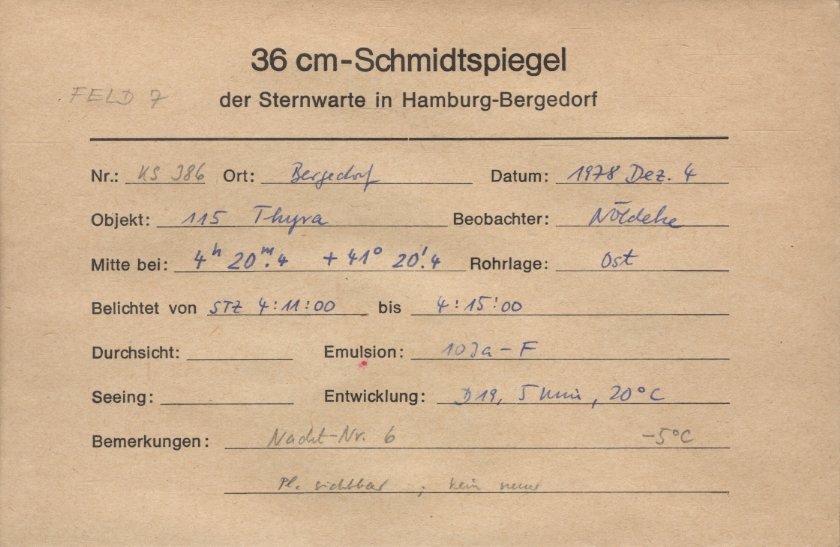 36 cm-Schmidtspiegel
FELD 7
der Sternwarte in Hamburg-Bergedorf
Nr.: KS 386 Ort: Bergedorf Datum: 1978 Dez. 4
Objekt: 115 Thyra Beobachter: Nöldeke
Mitte bei: 4ʰ 20ᵐ.4 +41° 20'.4 Rohrlage: Ost
Belichtet von STZ 4:11:00 bis 4:15:00
Durchsicht: Emulsion: 103a-F
Seeing: Entwicklung: D19, 5 min, 20°C
Bemerkungen: Nacht-Nr. 6 -5°C
Pl. sichtbar, kein neuer